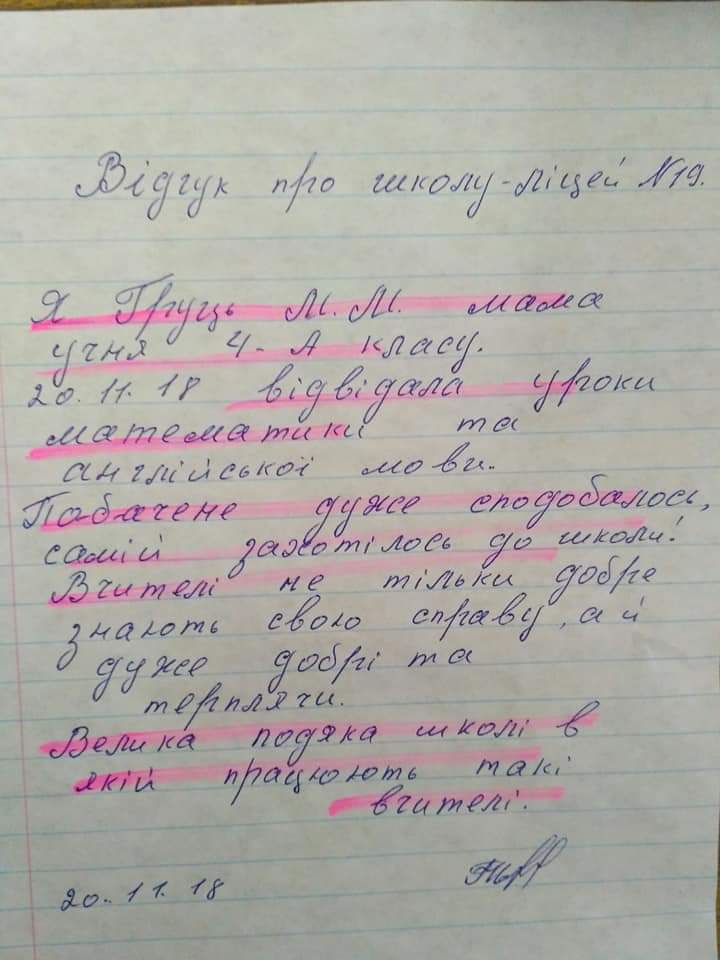 Відгук про школу-ліцей N19.
Я Груць М.М. мама
учня 4-А класу.
20.11.18 відвідала уроки
математики та
англійської мови.
Побачене дуже сподобалось,
самій захотілось до школи!
Вчителі не тільки добре
знають свою справу, а й
дуже добрі та
терплячи.
Велика подяка школі в
якій працюють такі
вчителі.
20.11.18